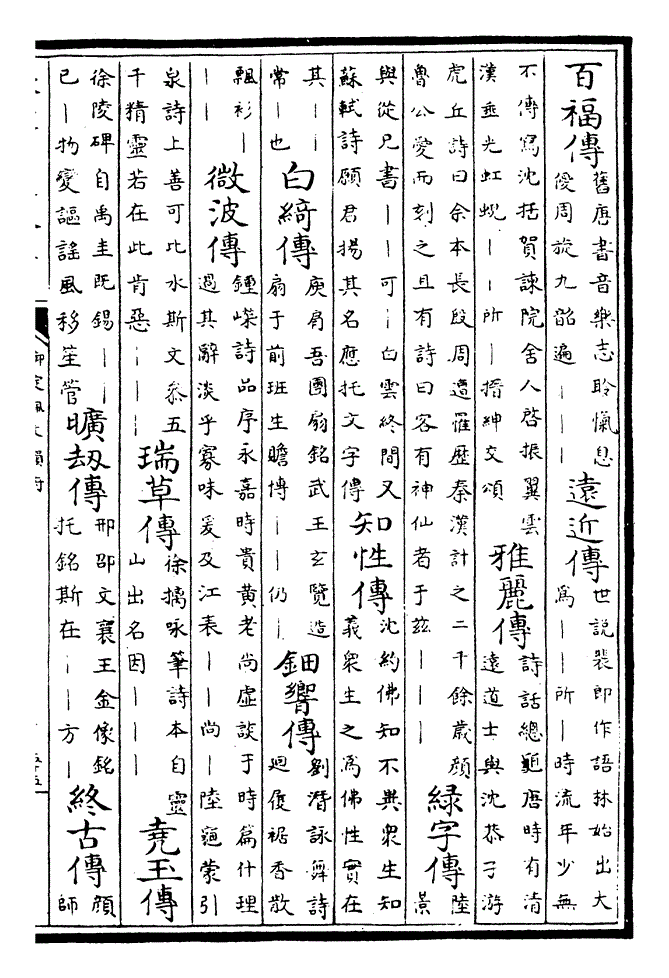 百福傳 舊唐書音樂志聆愾息
優周旋九韶遍｜｜｜
遠近傳 世說裴郎作語林始出大
為｜｜所｜時流年少無
不傳寫沈括賀諫院舍人啓振翼雲
漢垂光虹蜺｜｜所｜搢紳交頌
雅麗傳 詩話總龜唐時有清
遠道士與沈恭子游
虎丘詩曰余本長殷周遭罹歷秦漢計之二千餘歲顔
魯公愛而刻之且有詩曰客有神仙者于兹｜｜｜
緑字傳 陸
景
與從兄書｜｜可｜白雲終間又
蘇軾詩願君揚其名應托文字傳
知性傳 沈約佛知不異衆生知
義衆生之為佛性實在
其｜｜
常｜也
白綺傳 庾肩吾團扇銘武王玄覽造
扇于前班生贍傳｜｜仍｜
鈿響傳 劉潛詠舞詩
廻履裾香散
飄衫｜
｜｜
微波傳 鍾嶸詩品序永嘉時貴黄老尚虛談于時篇什理
過其辭淡乎寡味爰及江表｜｜尚｜陸龜蒙引
泉詩上善可比水斯文叅五
千精靈若在此肯惡｜｜｜
瑞草傳 徐摛咏筆詩本自靈
山出名因｜｜｜
堯玉傳
徐陵碑自禹圭既錫｜｜
已｜物變謳謡風移笙管
曠刼傳 邢邵文襄王金像銘
托銘斯在｜｜方｜
終古傳 顔
師
御定佩文韻府